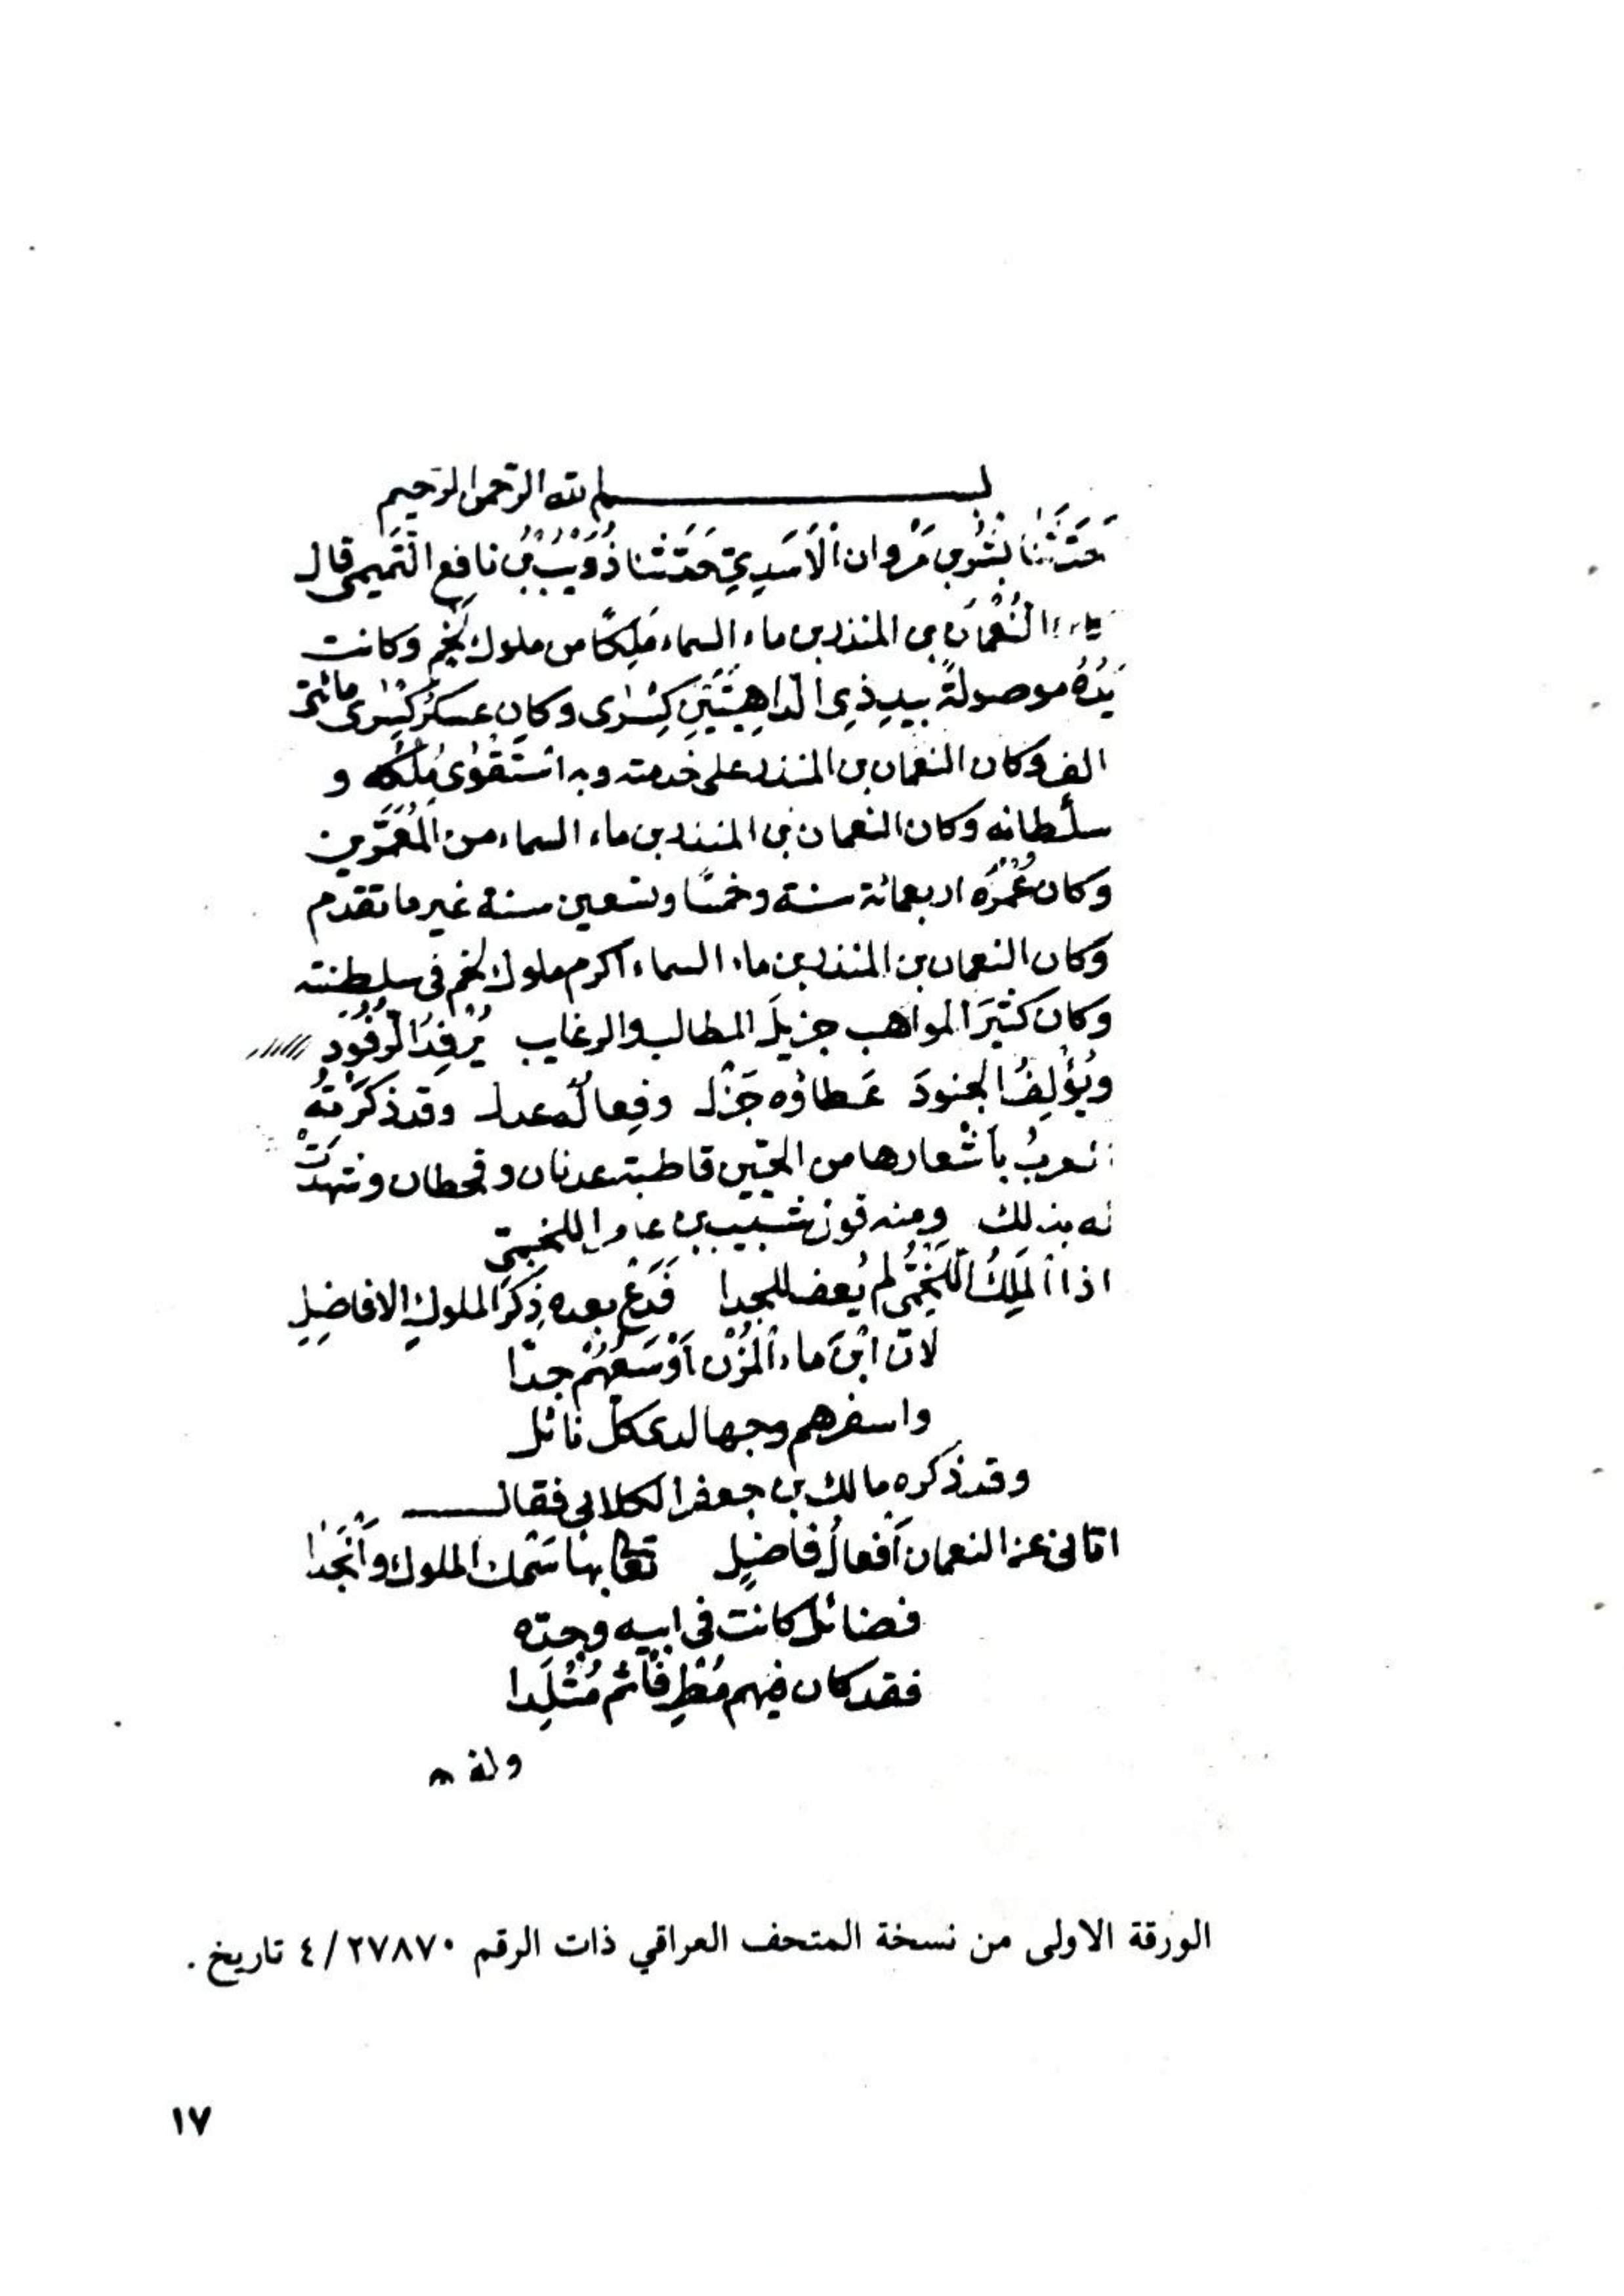 بسم الله الرحمن الرحيم
حَدَّثَنَا بِشْر بن مَرْوان الْأَسَدِيّ حَدَّثَنا ذُوَيْبُ بْنُ نافِع التَّمِيمي قال
النُعْمَان بن المنذر بن ماء السماء مَلِكًا من ملوك لخم وكانت
يَدُهُ موصولةً بيدِ ذِي الدّاهِيَتَيْنِ كِسْرٰى وكان عسكرُ كِسْرٰى مائتى
الف وكان النعمان بن المنذر على خدمته وبه اسْتَقْوٰى مُلْكُه و
سلْطانه وكان النعمان بن المنذر بن ماء السماء من المُعَمَّرين
وكان عُمْرُه اربعمائة سنة وخمسًا وتسعين سنة غير ما تقدم
وكان النعمان بن المنذر بن ماء السماء اكرم ملوك لخم فى سلطنته
وكان كثيرَ المواهب جزيلَ المطالب والرغايب يُرْفِدُ الوُفُودَ
ويُؤلِفُ الجنودَ عَطاؤه جَزْل وفِعالُه عدل وقد ذكَرَتْهُ
العربُ بأشْعارها من الحيّين قاطبة عدنان وقحطان وشهِدَتْ
له بذلك ومنه قول شبيب بن عامر اللخميّ
اذا الْمَلِكُ اللَّخْمِيُّ لم يُعض للجدا فَدَعْ بعده ذِكْرَ الملوكِ الافاضِلِ
لانّ ابْنَ ماء الْمُزْن اَوْسَعُهُمْ جدًا
واسفرهم وجها لدى كل نائل
وقد ذكره مالك بن جعفر الكلابى فقال
اتانى عن النعمان اَفعالُ فاضِلٍ بها سَمْك الملوك وأَنْجَدا
فضائل كانت فى ابيه وجدّه
فقد كان فيهم مُطْرِفًا ثم مُتْلِدا
وله
الورقة الاولى من نسخة المتحف العراقي ذات الرقم ٤/٢٧٨٧٠ تاريخ .
١٧